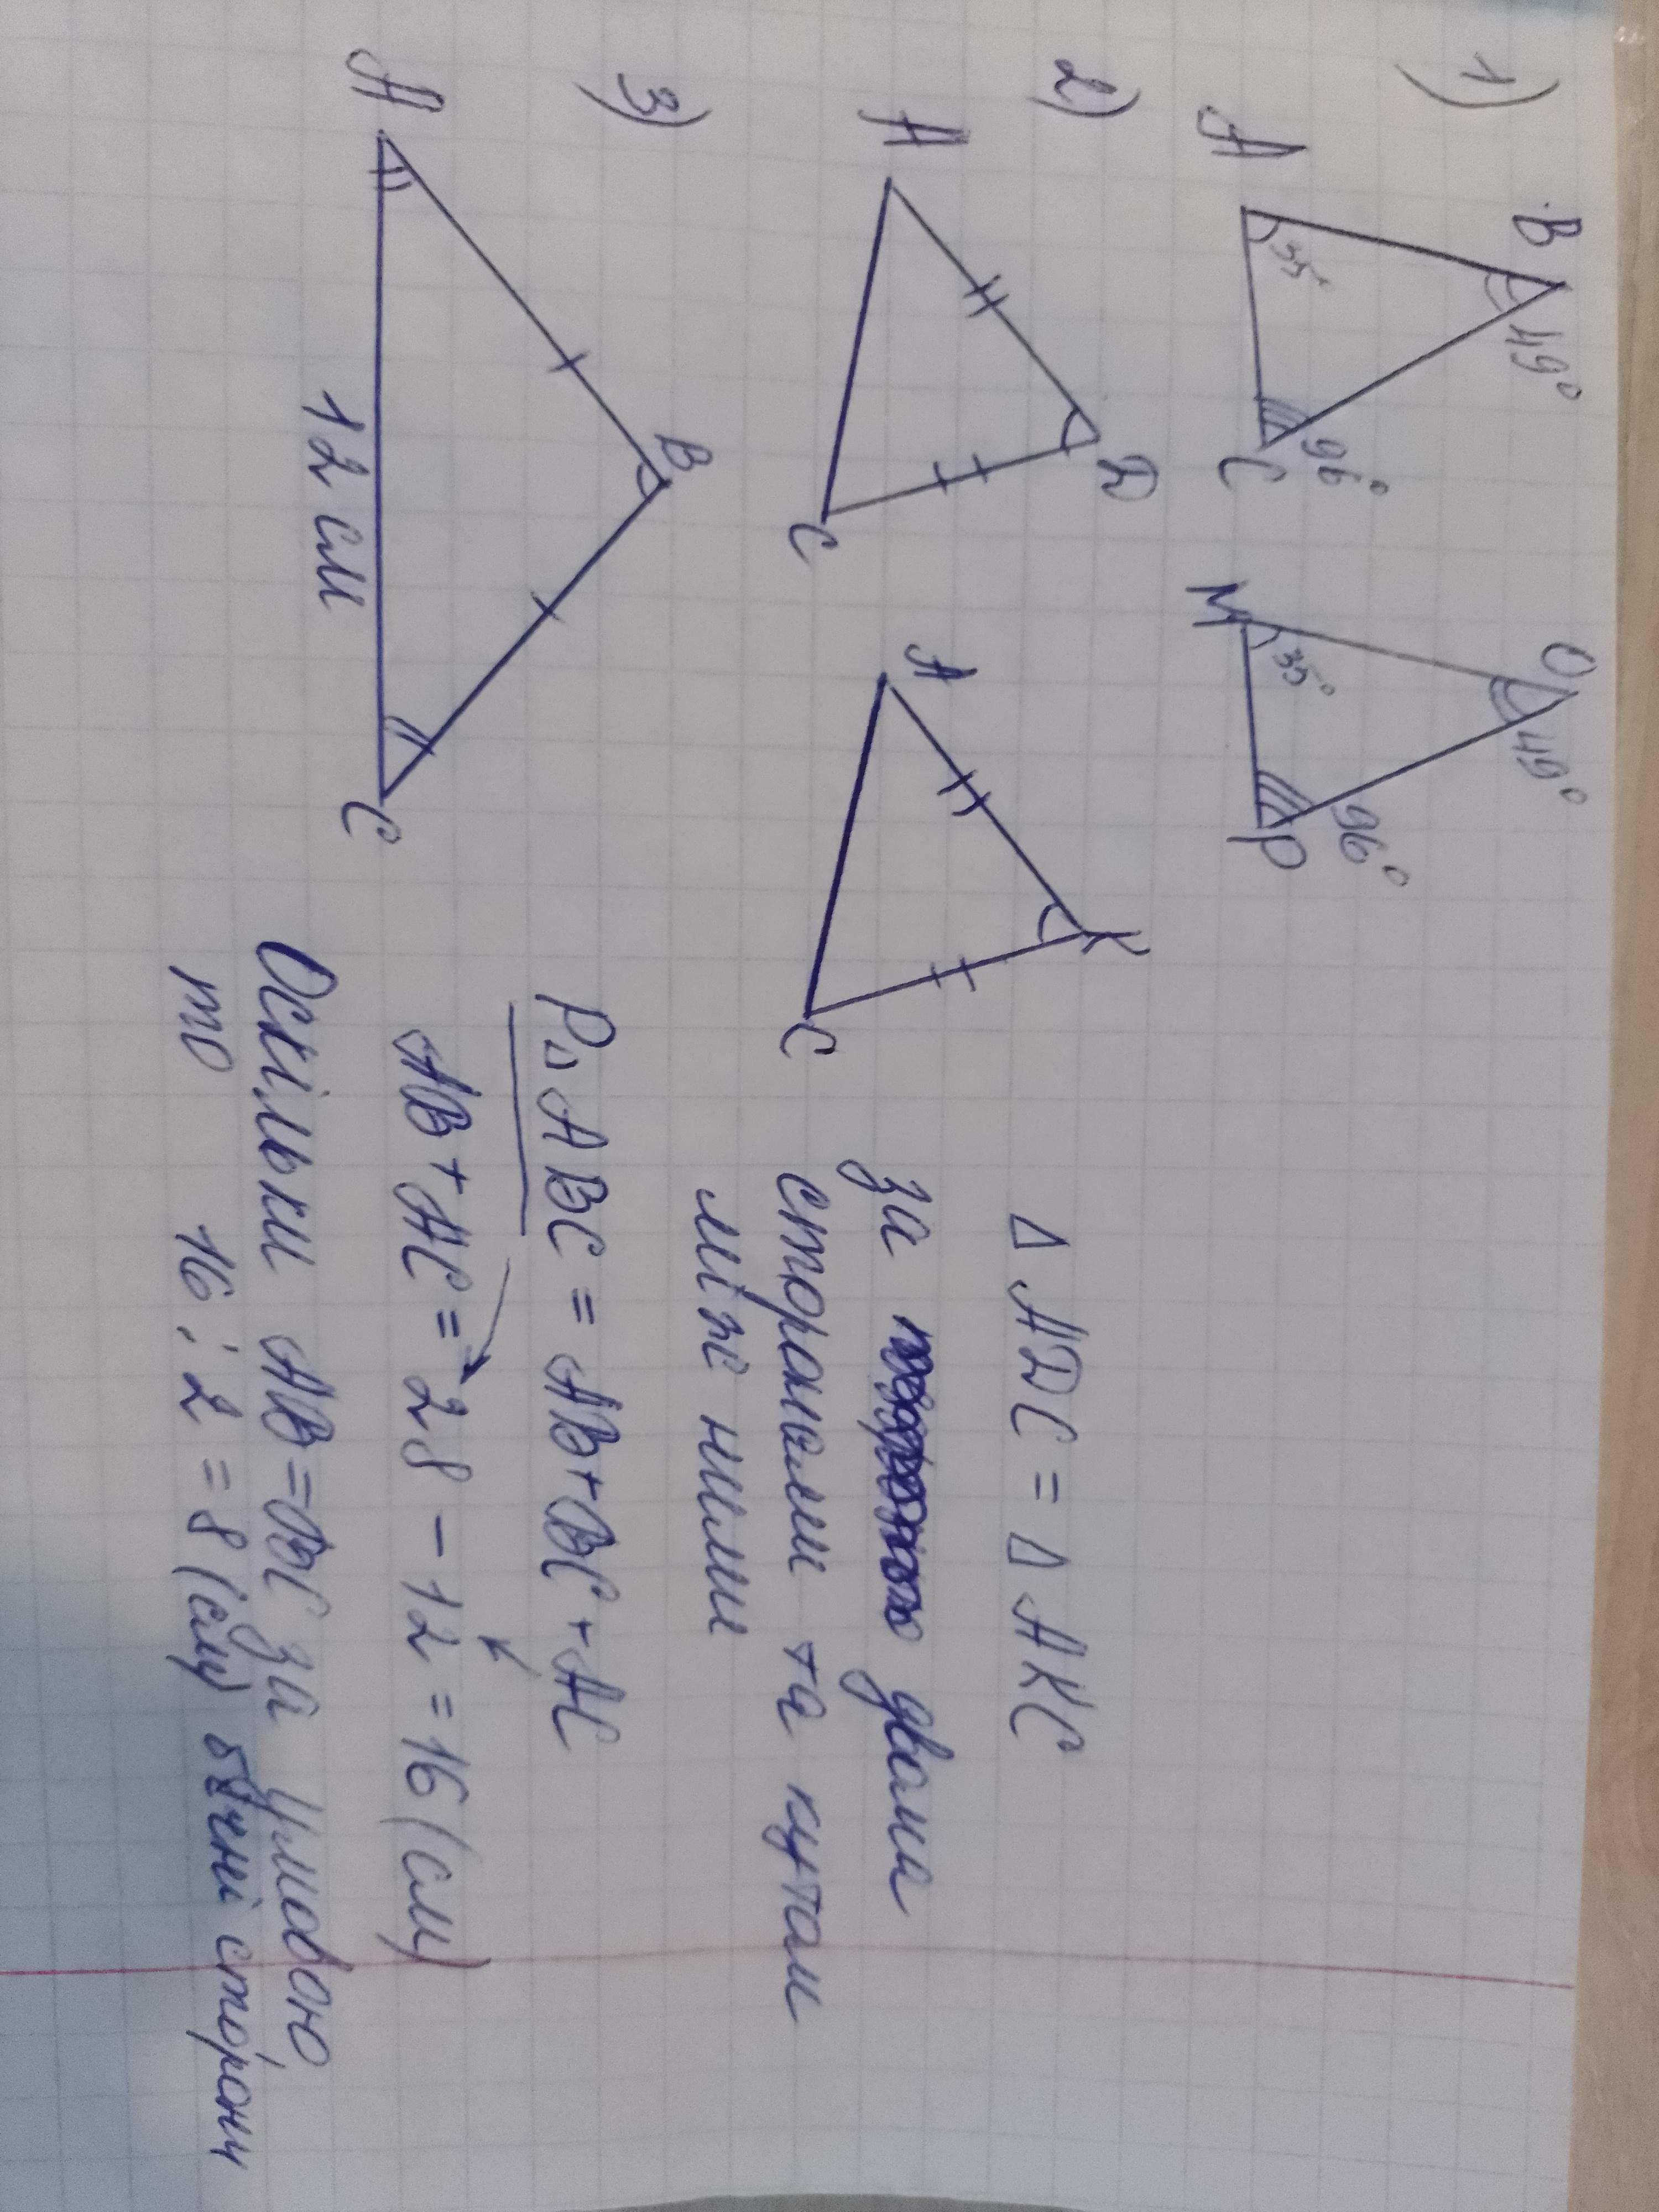 1)
B 49°
A 35°
C 96°
O 49°
M 35°
P 96°
2)
D
A
C
K
A
C
Δ ADC = Δ AKC
за двома
сторонами та кутом
між ними
3)
B
A
C
12 см
P△ ABC = AB+BC+AC
AB+AC = 28 - 12 = 16 (см)
Оскільки AB=BC за умовою,
то 16 : 2 = 8 (см) бічні сторони